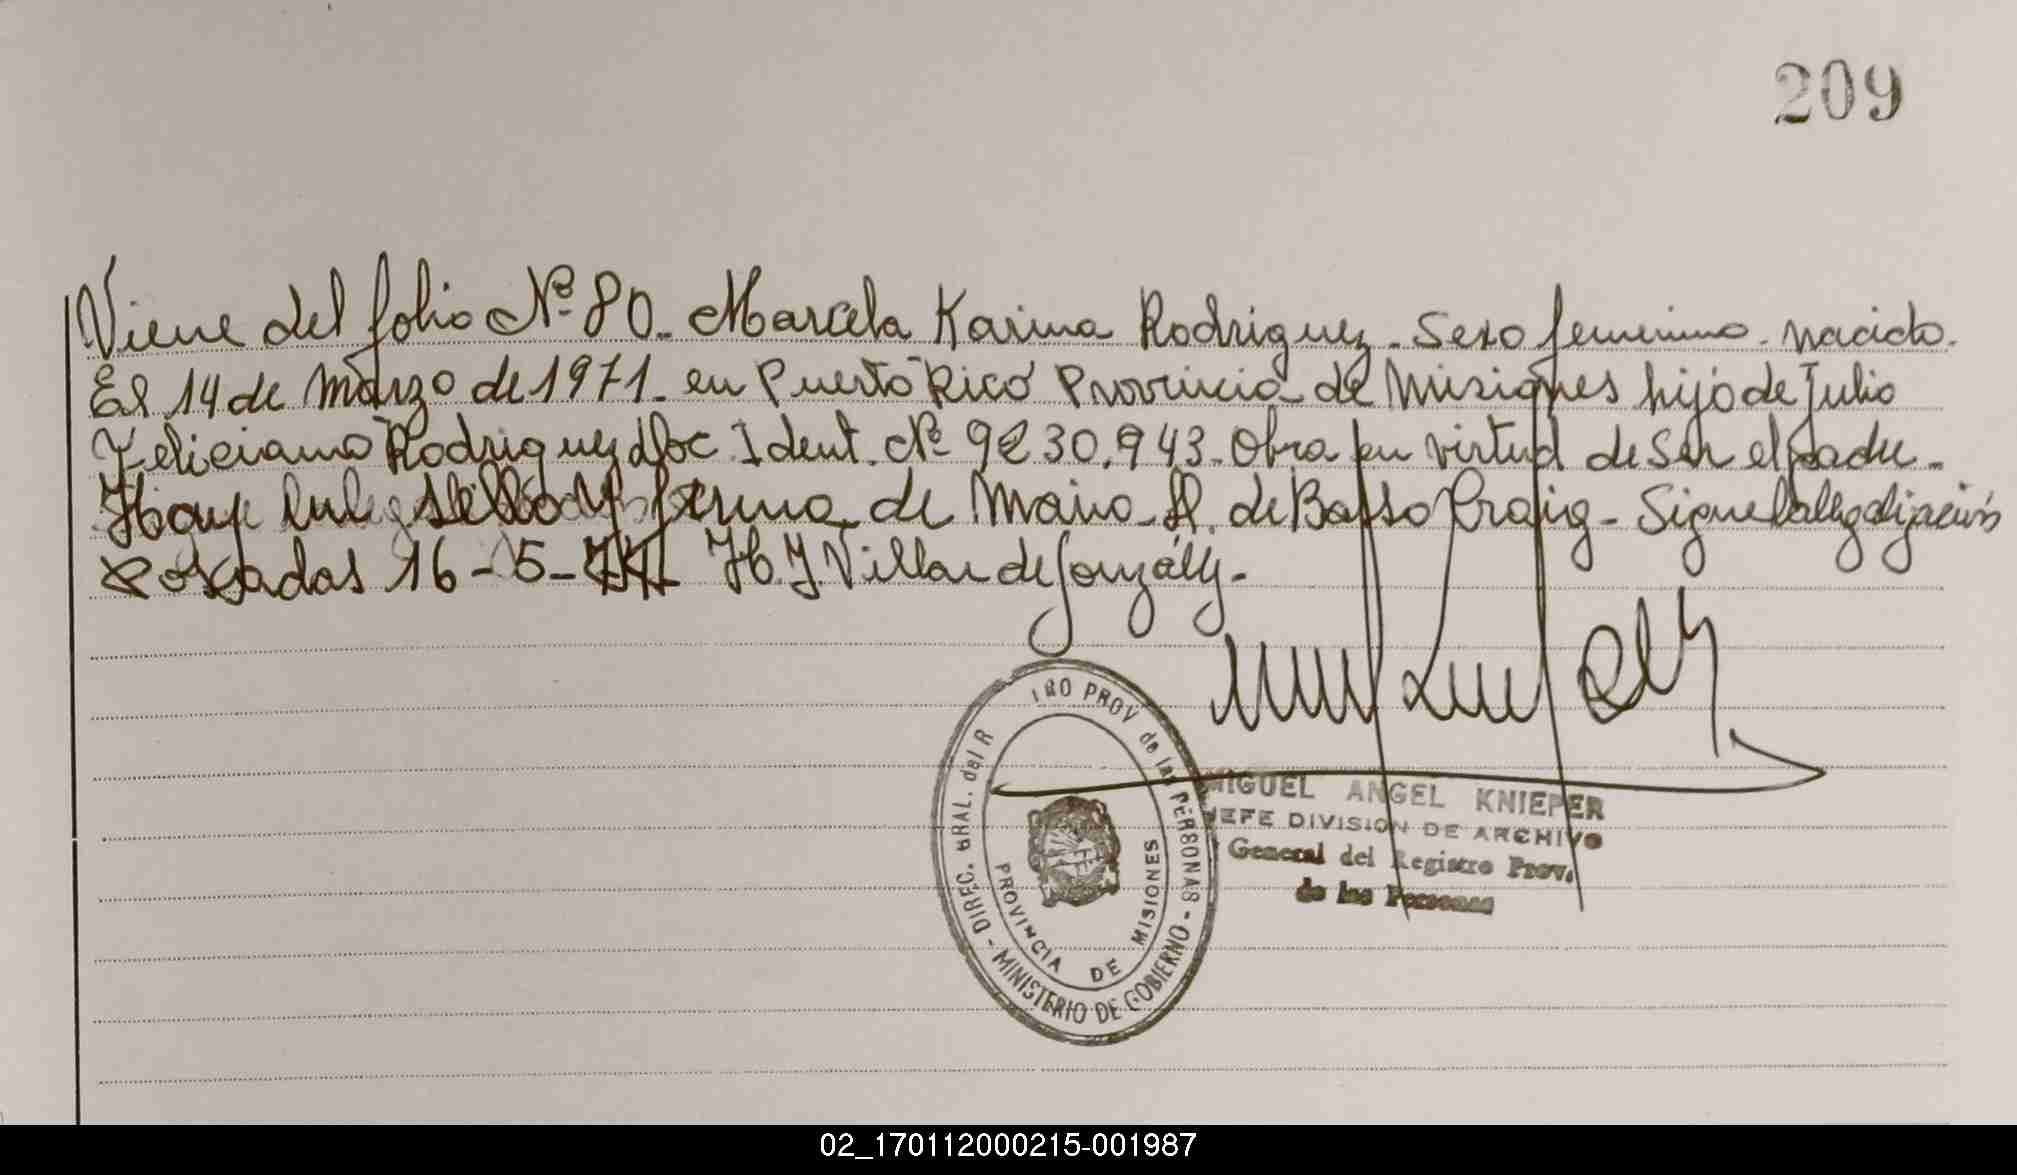 209
Viene del folio Nº 80. Marcela Karina Rodriguez. Sexo femenino. nacido.
El 14 de Marzo de 1971. en Puerto Rico Provincia de Misiones hijo de Julio
Feliciano Rodriguez Doc. Ident. Nº 9230.943. Obra en virtud de Ser el padre.
Hay un sello y firma de Maria de Basso Sigue la legalización
Posadas 16-5-71 H. J. Villar de González.
DIREC. GRAL. del R TRO PROV de las PERSONAS - MINISTERIO DE GOBIERNO -
PROVINCIA DE MISIONES
MIGUEL ANGEL KNIEPER
JEFE DIVISION DE ARCHIVO
General del Registro Prov.
de las Personas
02_170112000215-001987